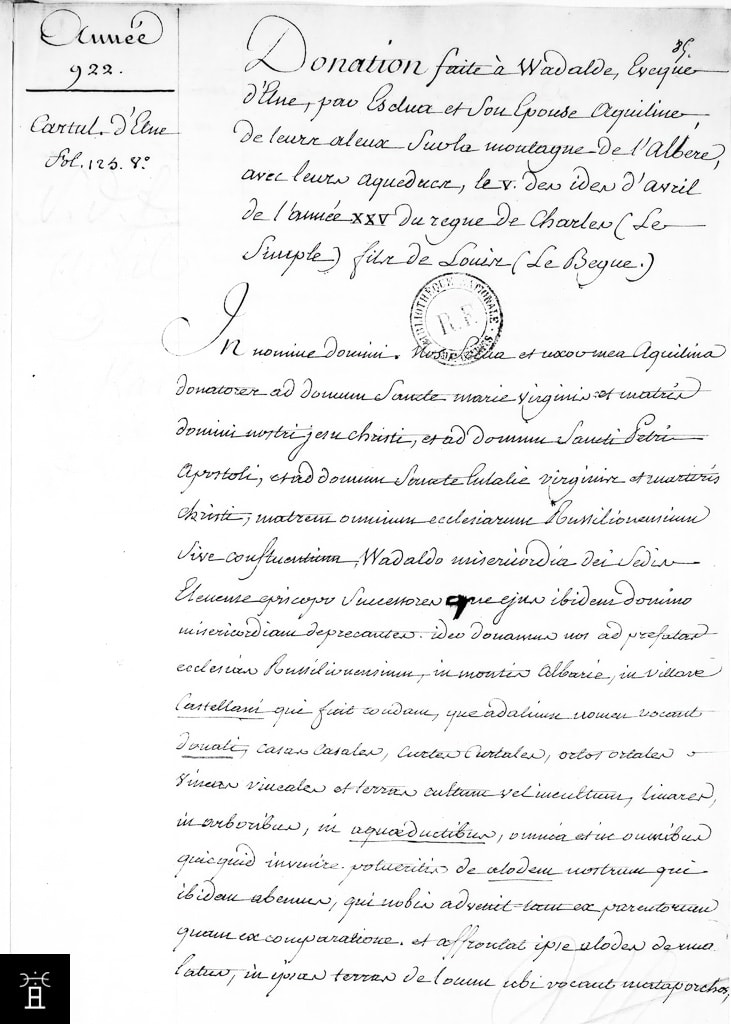 Année
922.
Cartul. d'Elne
Fol. 123. V.º
85.
Donation faite à Wadalde, Evêque
d'Elne, par Esclua et son Epouse Aquiline
de leurs aleux sur la montagne de l'Albere,
avec leurs aqueducs, le v. des ides d'avril
de l'année XXV du regne de Charles (Le
Simple) fils de Louis (Le Begue.)
BIBLIOTHÈQUE NATIONALE
R.F.
In nomine domini. Nos et uxor mea Aquilina
donatores ad domum Sancte marie virginis et matris
domini nostri jesu christi, et ad domum Sancti Petri
Apostoli, et ad domum Sancte Eulalie virginis et marteris
christi, matrem omnium ecclesiarum Russilionensium
sive confluentium, Wadaldo misericordia dei Sedis
Elenense episcopo successores que ejus ibidem domino
misericordiam deprecantes. ideo donamus nos ad prefatas
ecclesias Russilionensium, in montis Albarie, in villare
Castellani qui fuit condam, que ad alium nomen vocant
donati, casas casales, curtes curtales, ortos ortales
vineas vineales et terras cultum vel incultum, linares,
in arboribus, in aquæductibus, omnia et in omnibus
quicquid invenire potueritis de alodem nostrum qui
ibidem abemus, qui nobis advenit tam ex parentorum
quam ex comparatione. et affrontat ipse alodes de una
latus, in ipsas terras de ubi vocant mataporchos,